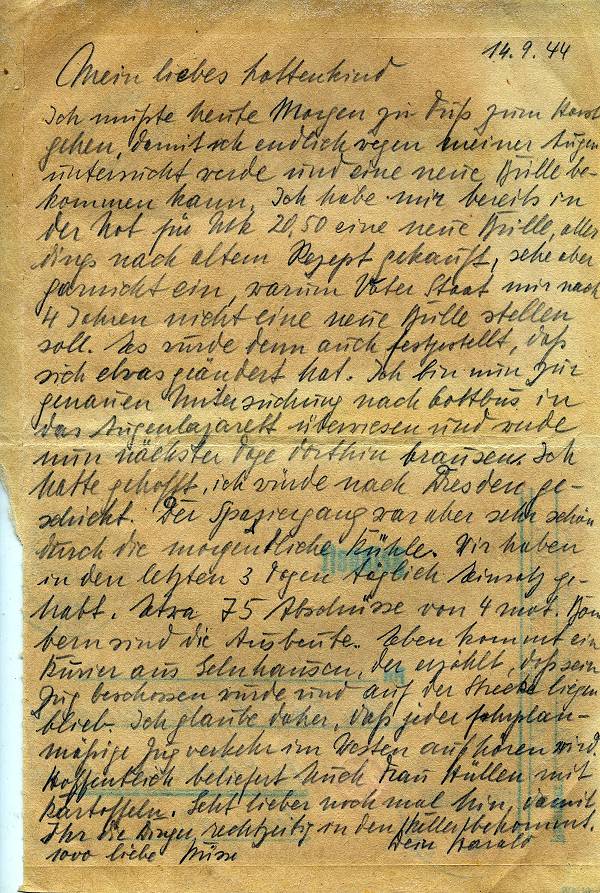 14.9.44
Mein liebes Lottenkind
Ich mußte heute Morgen zu Fuß zum Horst
gehen, damit ich endlich wegen meiner Augen
untersucht werde und eine neue Brille be-
kommen kann. Ich habe mir bereits in
der Not für Mk 20,50 eine neue Brille, aller
dings nach altem Rezept gekauft, sehe aber
garnicht ein, warum Vater Staat mir nach
4 Jahren nicht eine neue Brille stellen
soll. Es wurde denn auch festgestellt, daß
sich etwas geändert hat. Ich bin nun zur
genauen Untersuchung nach Cottbus in
das Augenlazarett überwiesen und werde
nun nächster Tage dorthin brausen. Ich
hatte gehofft, ich würde nach Dresden ge-
schickt. Der Spaziergang war aber sehr schön
durch die morgendliche Kühle. Wir haben
in den letzten 3 Tagen täglich Einsatz ge-
habt. Etwa 75 Abschüsse von 4 mot. Bom
bern sind die Ausbeute. Eben kommt ein
Kurier aus, der erzählt, daß sein
Zug beschossen wurde und auf der Strecke liegen
blieb. Ich glaube daher, daß jeder fahrplan-
mäßige Zugverkehr im Westen aufhören wird.
Hoffentlich beliefert Euch Frau Hüllen mit
Kartoffeln. Geht lieber noch mal hin, damit
Ihr die Dinger rechtzeitig in den Keller bekommt.
1000 liebe Küsse Dein Harald